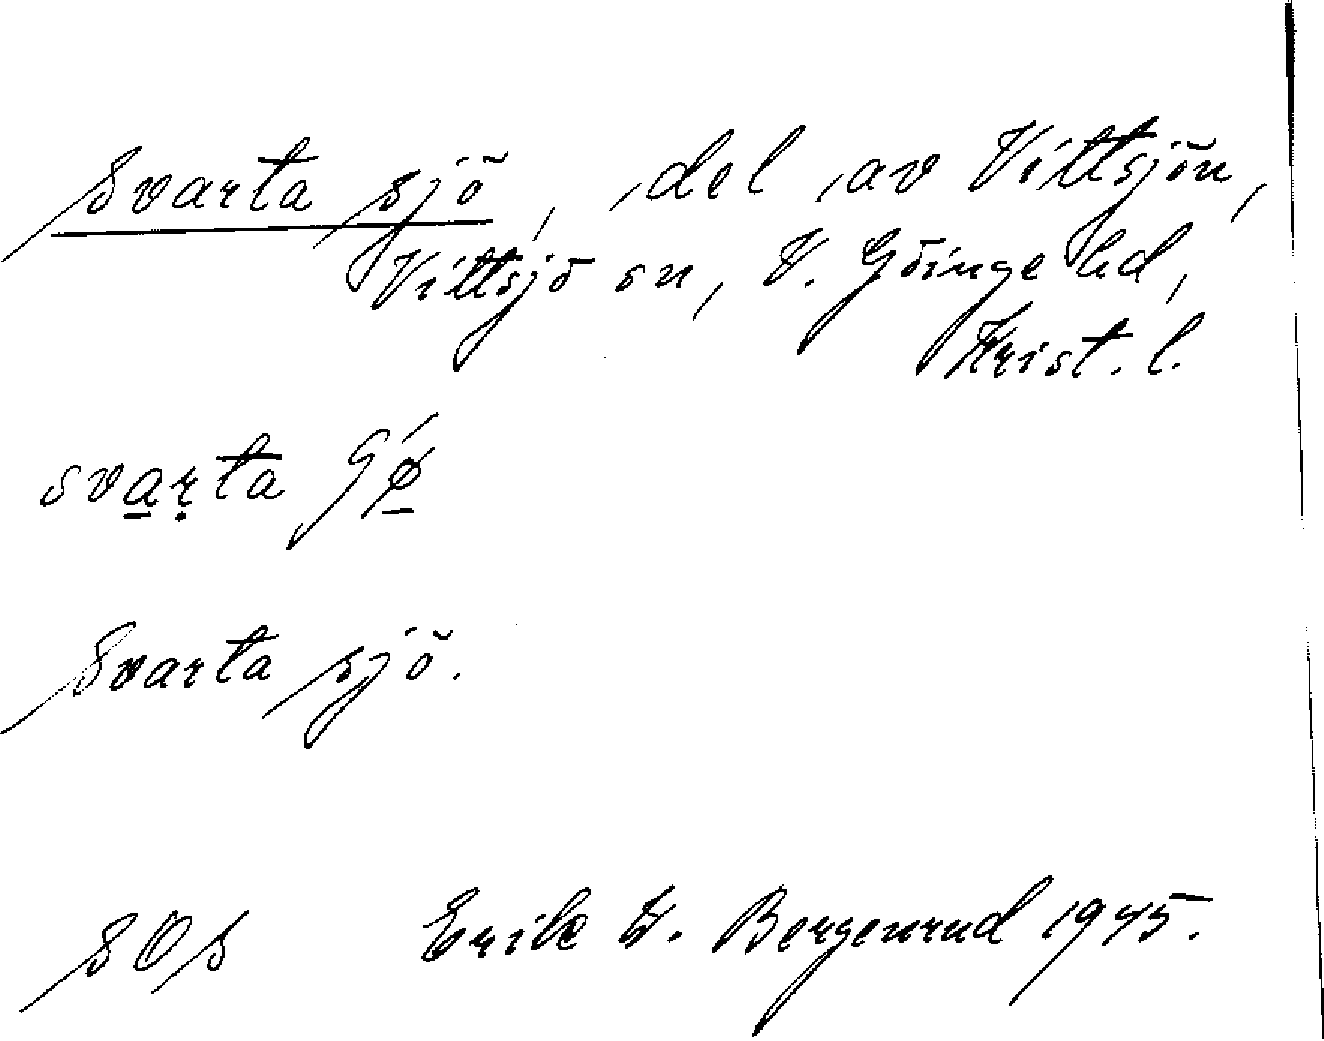 Svarta sjö, del av Vittsjön,
Vittsjö sn, V. Göinge hd,
Krist. l.
sva̱ṛta ʃǿ̱
Svarta sjö.
SOS Erik W. Bergenrud 1945.